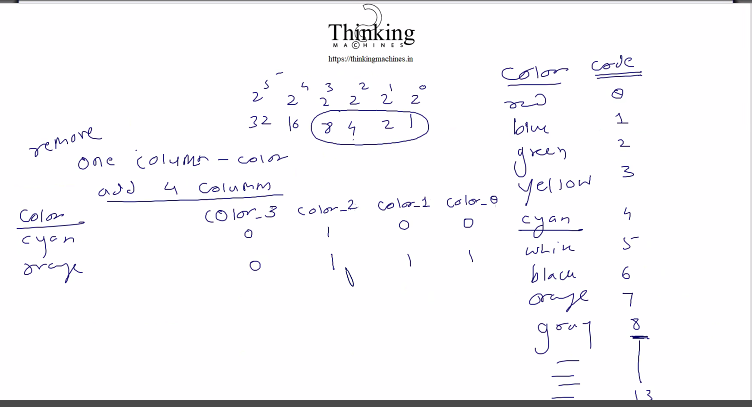 Thinking
MACHINES
https://thinkingmachines.in
2^5 2^4 2^3 2^2 2^1 2^0
32 16 8 4 2 1
remove
one column - color
add 4 columns
Color color_3 color_2 color_1 color_0
cyan 0 1 0 0
orange 0 1 1 1
Color code
red 0
blue 1
green 2
yellow 3
cyan 4
white 5
black 6
orange 7
gray 8
13